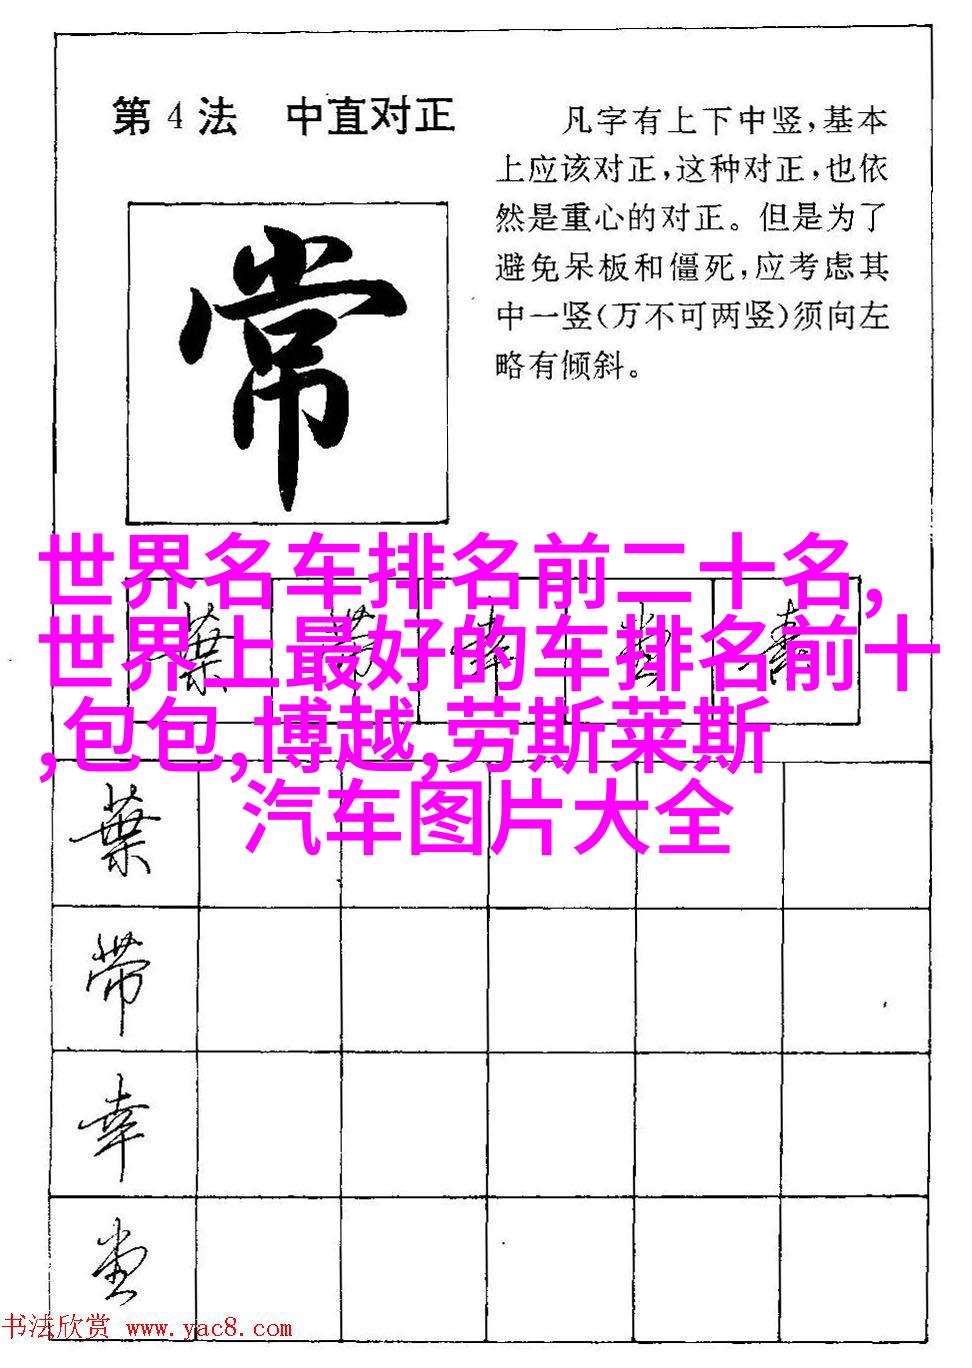 第4法 中直对正
凡字有上下中竖,基本
上应该对正,这种对正,也依
然是重心的对正。但是为了
避免呆板和僵死,应考虑其
中一竖(万不可两竖)须向左
略有倾斜。
常
世界名车排名前二十名,
世界上最好的车排名前十
,包包,博越,劳斯莱斯
汽车图片大全
葉
葉
帶
幸
堂
书法欣赏 www.yac8.com